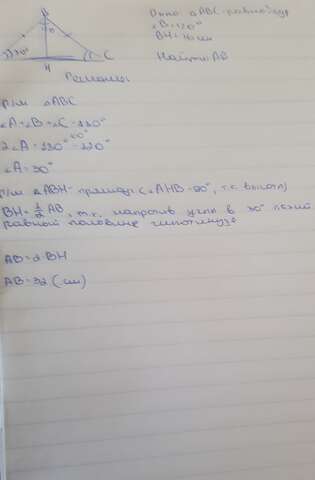 Дано: △ABC-равноб
∠B=120°
BH=16см
Найти: AB
B
30°
C
H
Решение
Р/м △ABC
∠A+∠B+∠C=180°
60°
2∠A=180°-120°
∠A=30°
Р/м △ABH- прямоуг (∠AHB=90°, т.к. высота)
BH=1/2 AB, т.к. напротив угла в 30° лежит
равной половине гипотенузе
AB=2BH
AB=32 (см)